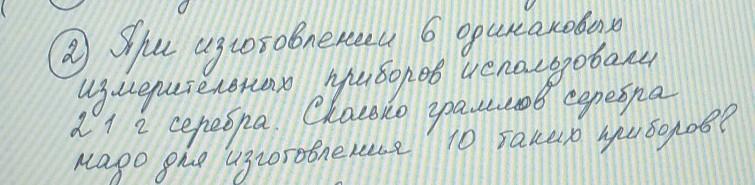 ② При изготовлении 6 одинаковых
измерительных приборов использовали
21 г серебра. Сколько граммов серебра
надо для изготовления 10 таких приборов?